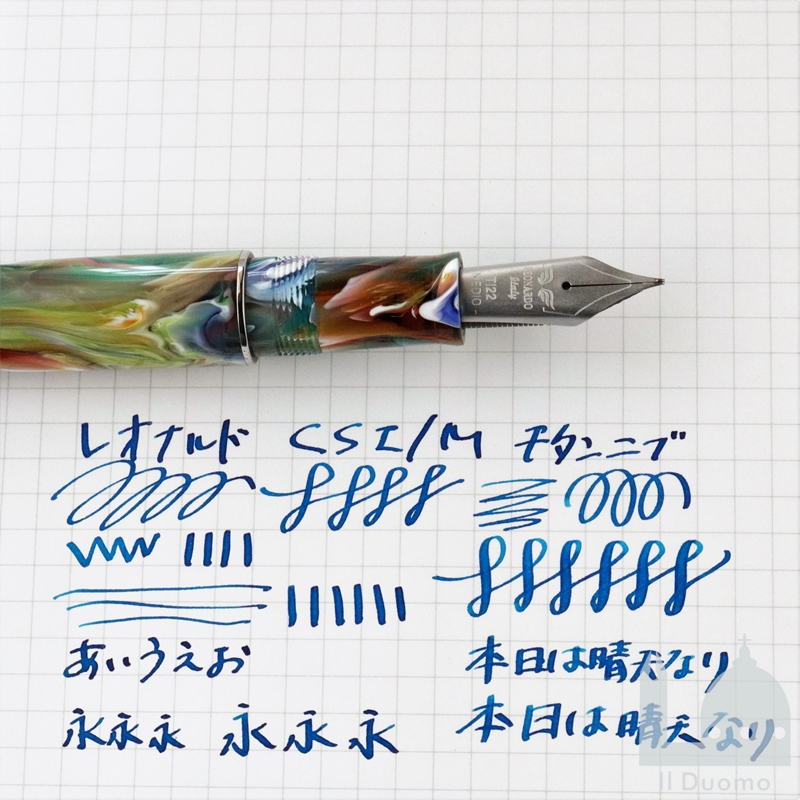 LEONARDO
Italy
TI22
MEDIO
レオナルド CSI/M チタンニブ
あいうえお
本日は晴天なり
永永永 永永永
本日は晴天なり
Il Duomo